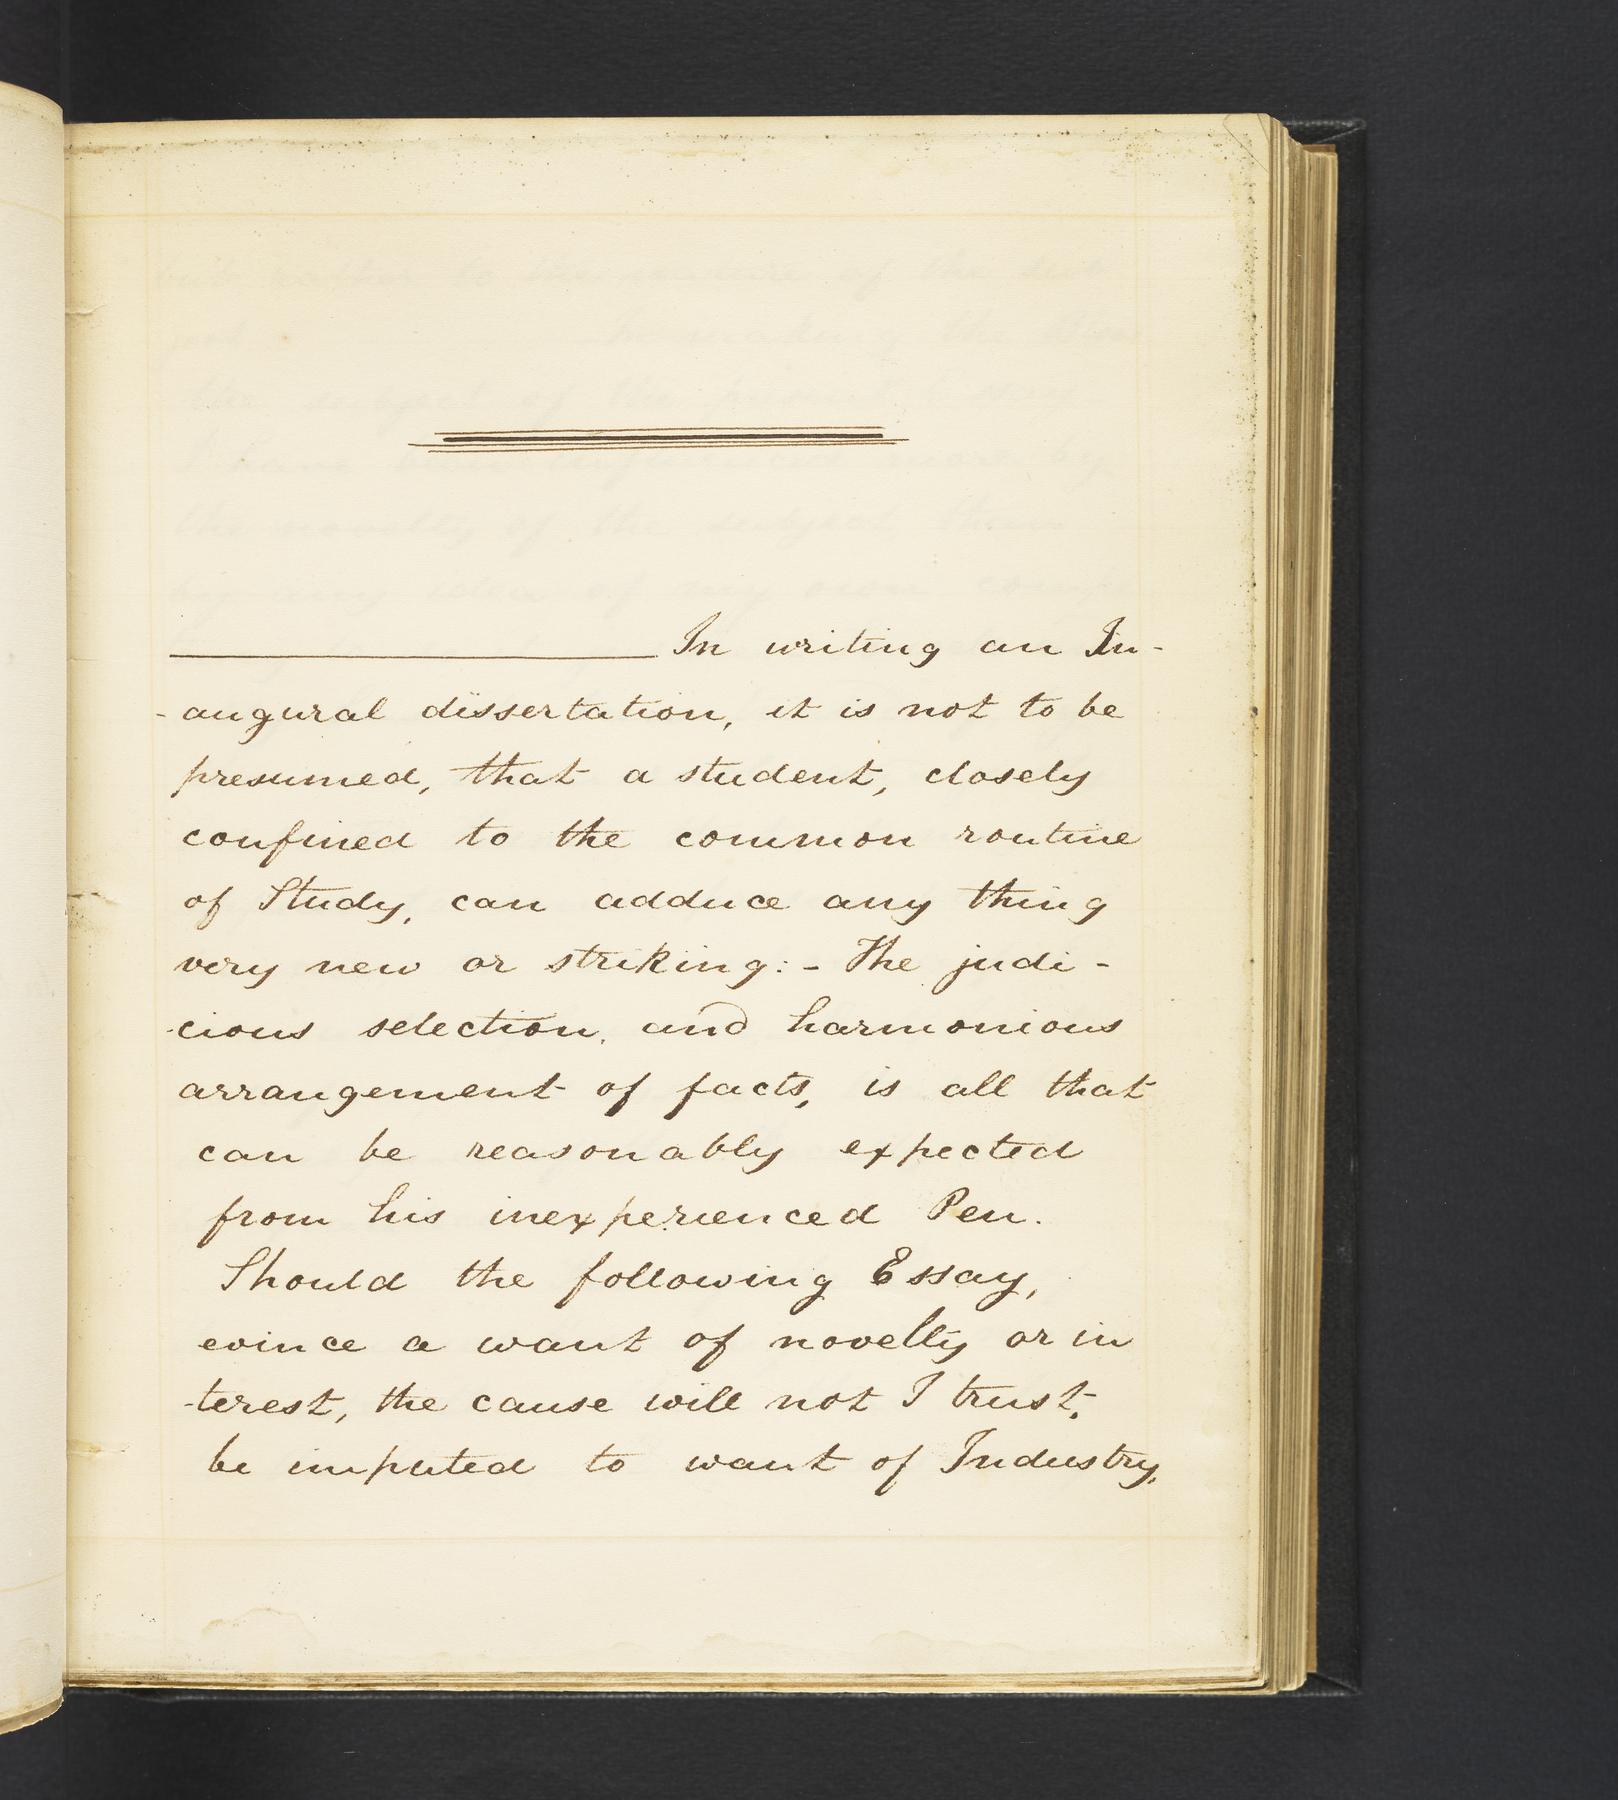 In writing an In-
-augural dissertation, it is not to be
presumed, that a student, closely
confined to the common routine
of Study, can adduce any thing
very new or striking:- The judi-
-cious selection, and harmonious
arrangement of facts, is all that
can be reasonably expected
from his inexperienced Pen.
Should the following Essay,
evince a want of novelty or in
-terest, the cause will not I trust,
be imputed to want of Industry,